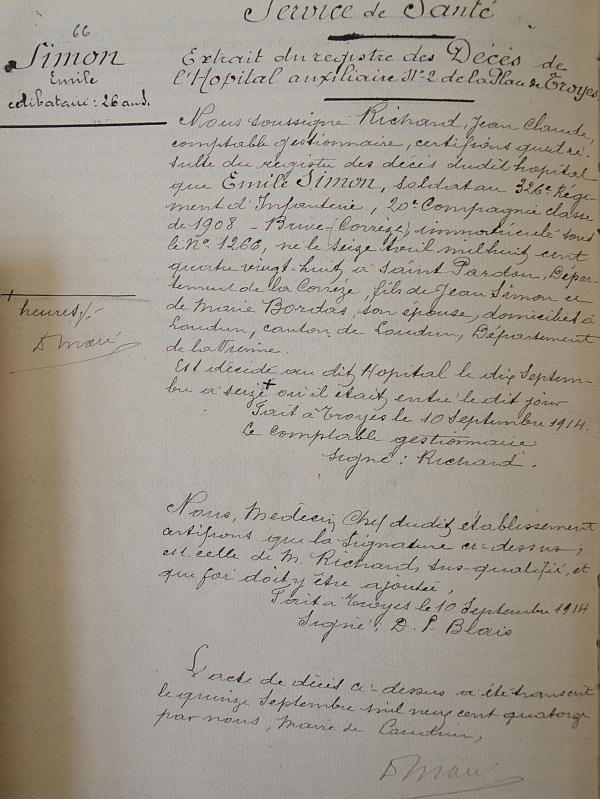 Service de Santé
66
Simon
Emile
célibataire : 26 ans.
Extrait du registre des Décès de
l'Hopital auxiliaire N°2 de la Place de Troyes
Nous soussigné Richard, Jean Claude,
comptable gestionnaire, certifions qu'il ré-
sulte du registre des décès dudit hopital
que Emile Simon, soldat au 326e Régi-
ment d'Infanterie, 20e Compagnie classe
de 1908 - Brive (Corrèze) immatriculé sous
le N° 1266, né le seize Avril mil huit cent
quatre vingt-huit à Saint Pardou, Dépar-
tement de la Corrèze, fils de Jean Simon et
de Marie Bordas, son épouse, domiciliés à
Loudun, canton de Loudun, Département
de la Vienne.
Est décédé au dit Hopital le dix Septem-
bre à seize + où il était entré le dit jour
+ heures ./.
Fait à Troyes le 10 Septembre 1914.
Le comptable gestionnaire
Signé : Richard.
Nous, Médecin Chef dudit établissement
certifions que la signature ci-dessus,
est celle de M. Richard, sus-qualifié, et
que foi doit y être ajoutée,
Fait à Troyes le 10 Septembre 1914
Signé : D. P. Blais
L'acte de décès ci-dessus a été transcrit
le quinze Septembre mil neuf cent quatorze
par nous, Maire de Loudun,